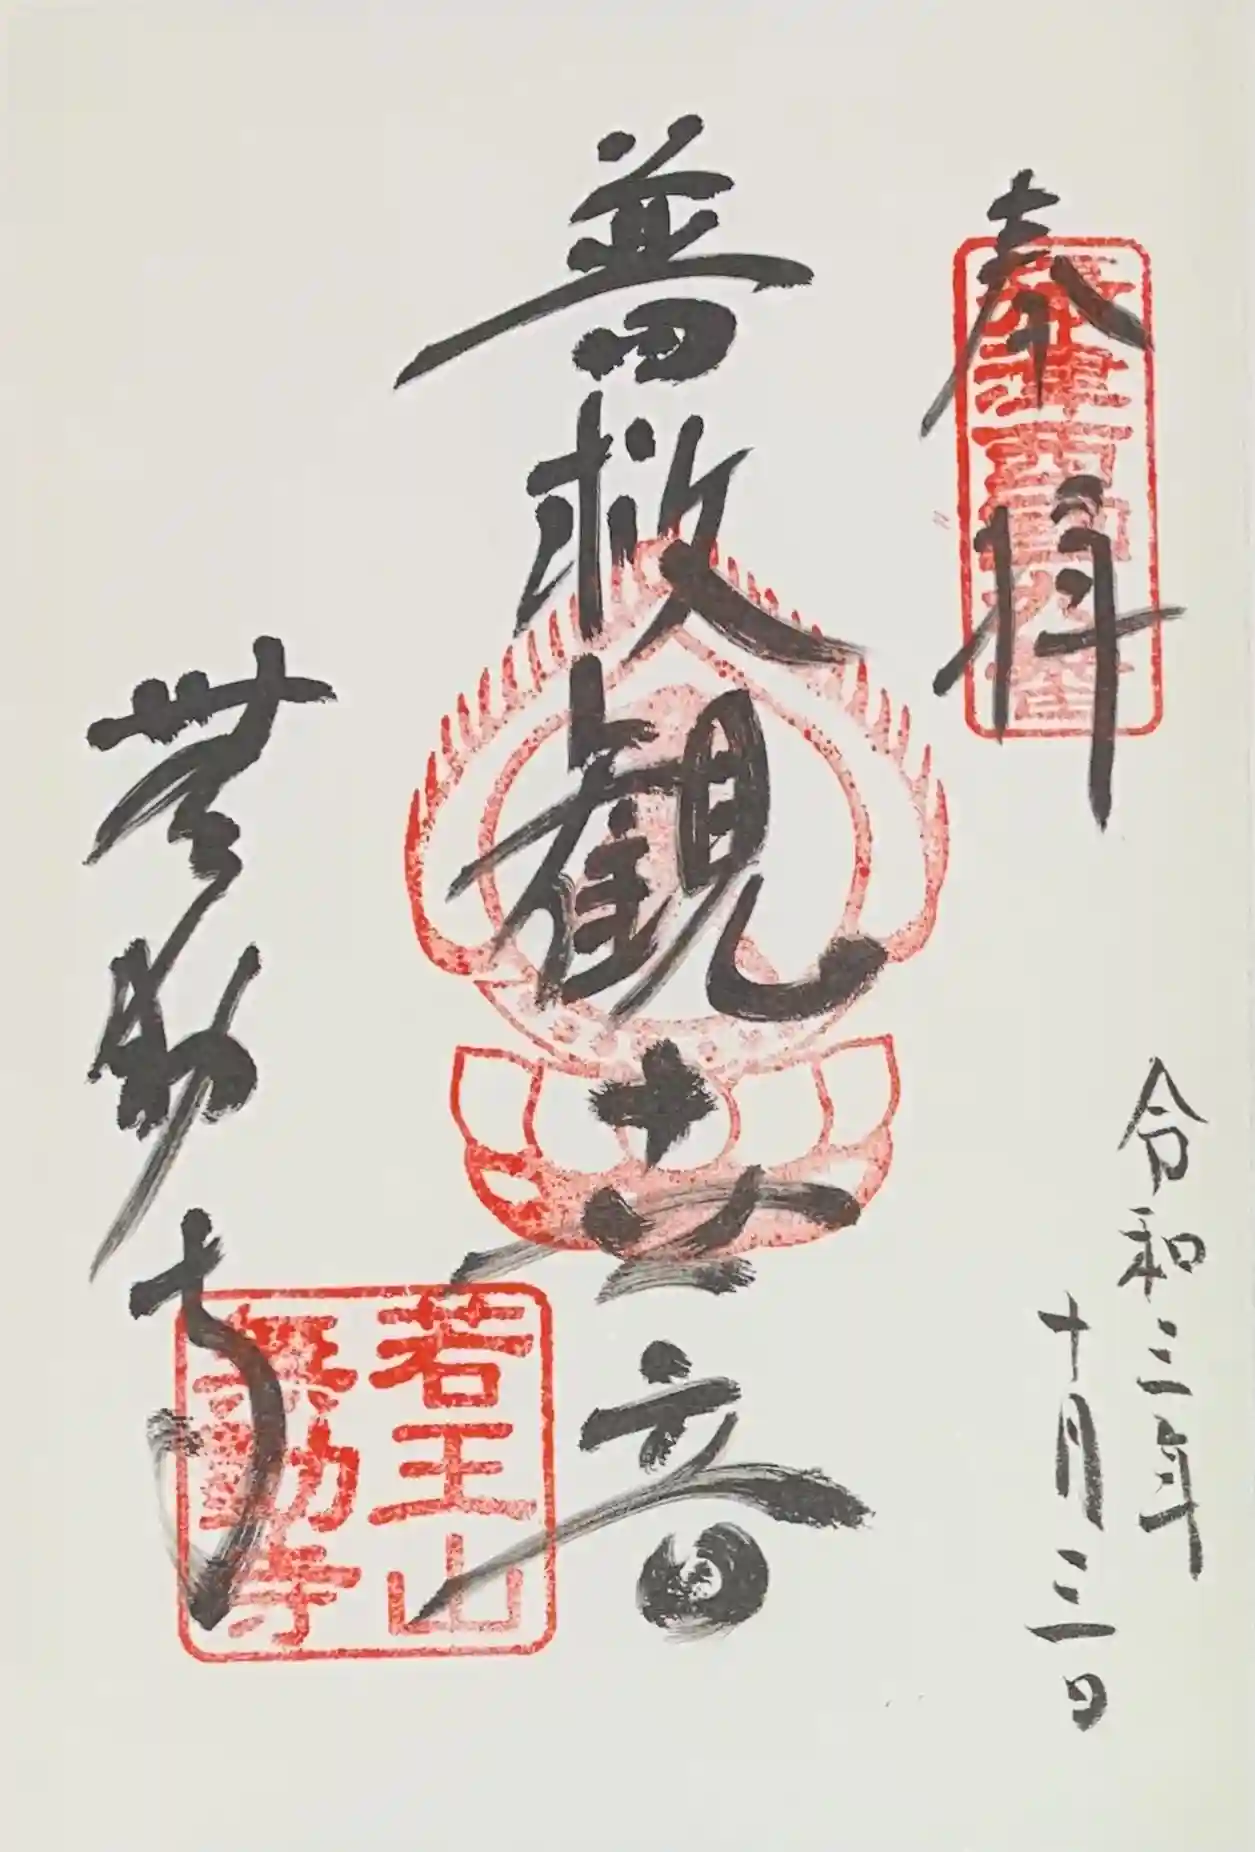 奉拝
令和三年
十月三日
普救観世音
無動寺
若王山
無動寺